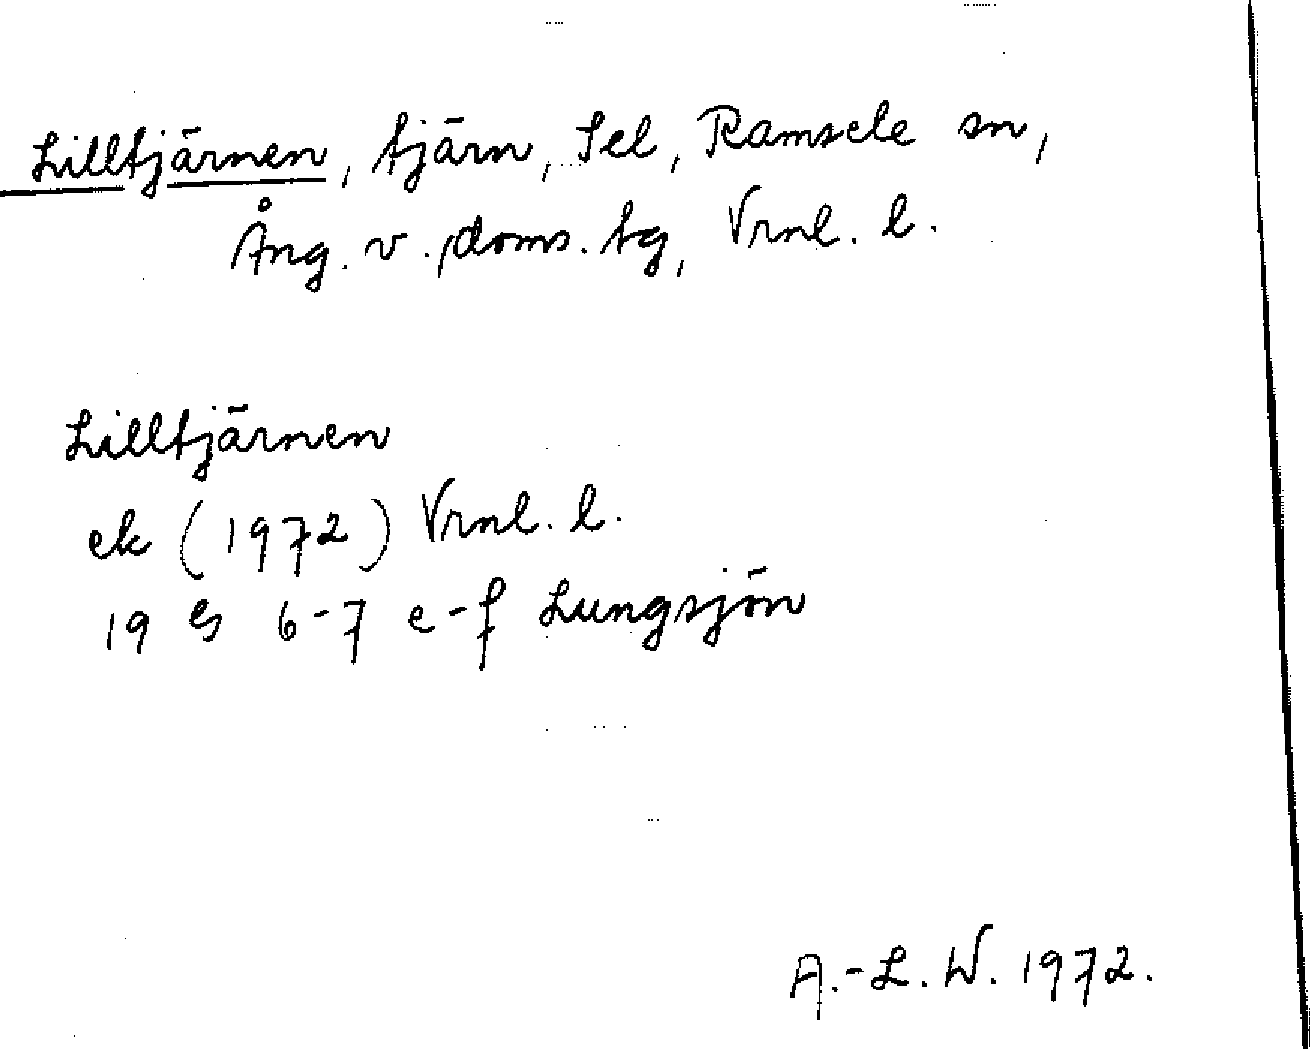 Lilltjärnen, tjärn, Sel, Ramsele sn,
Ång. v. doms. tg, Vrnl. l.
Lilltjärnen
ek (1972) Vrnl. l.
19 G 6-7 e-f Lungsjön
A.-L. W. 1972.